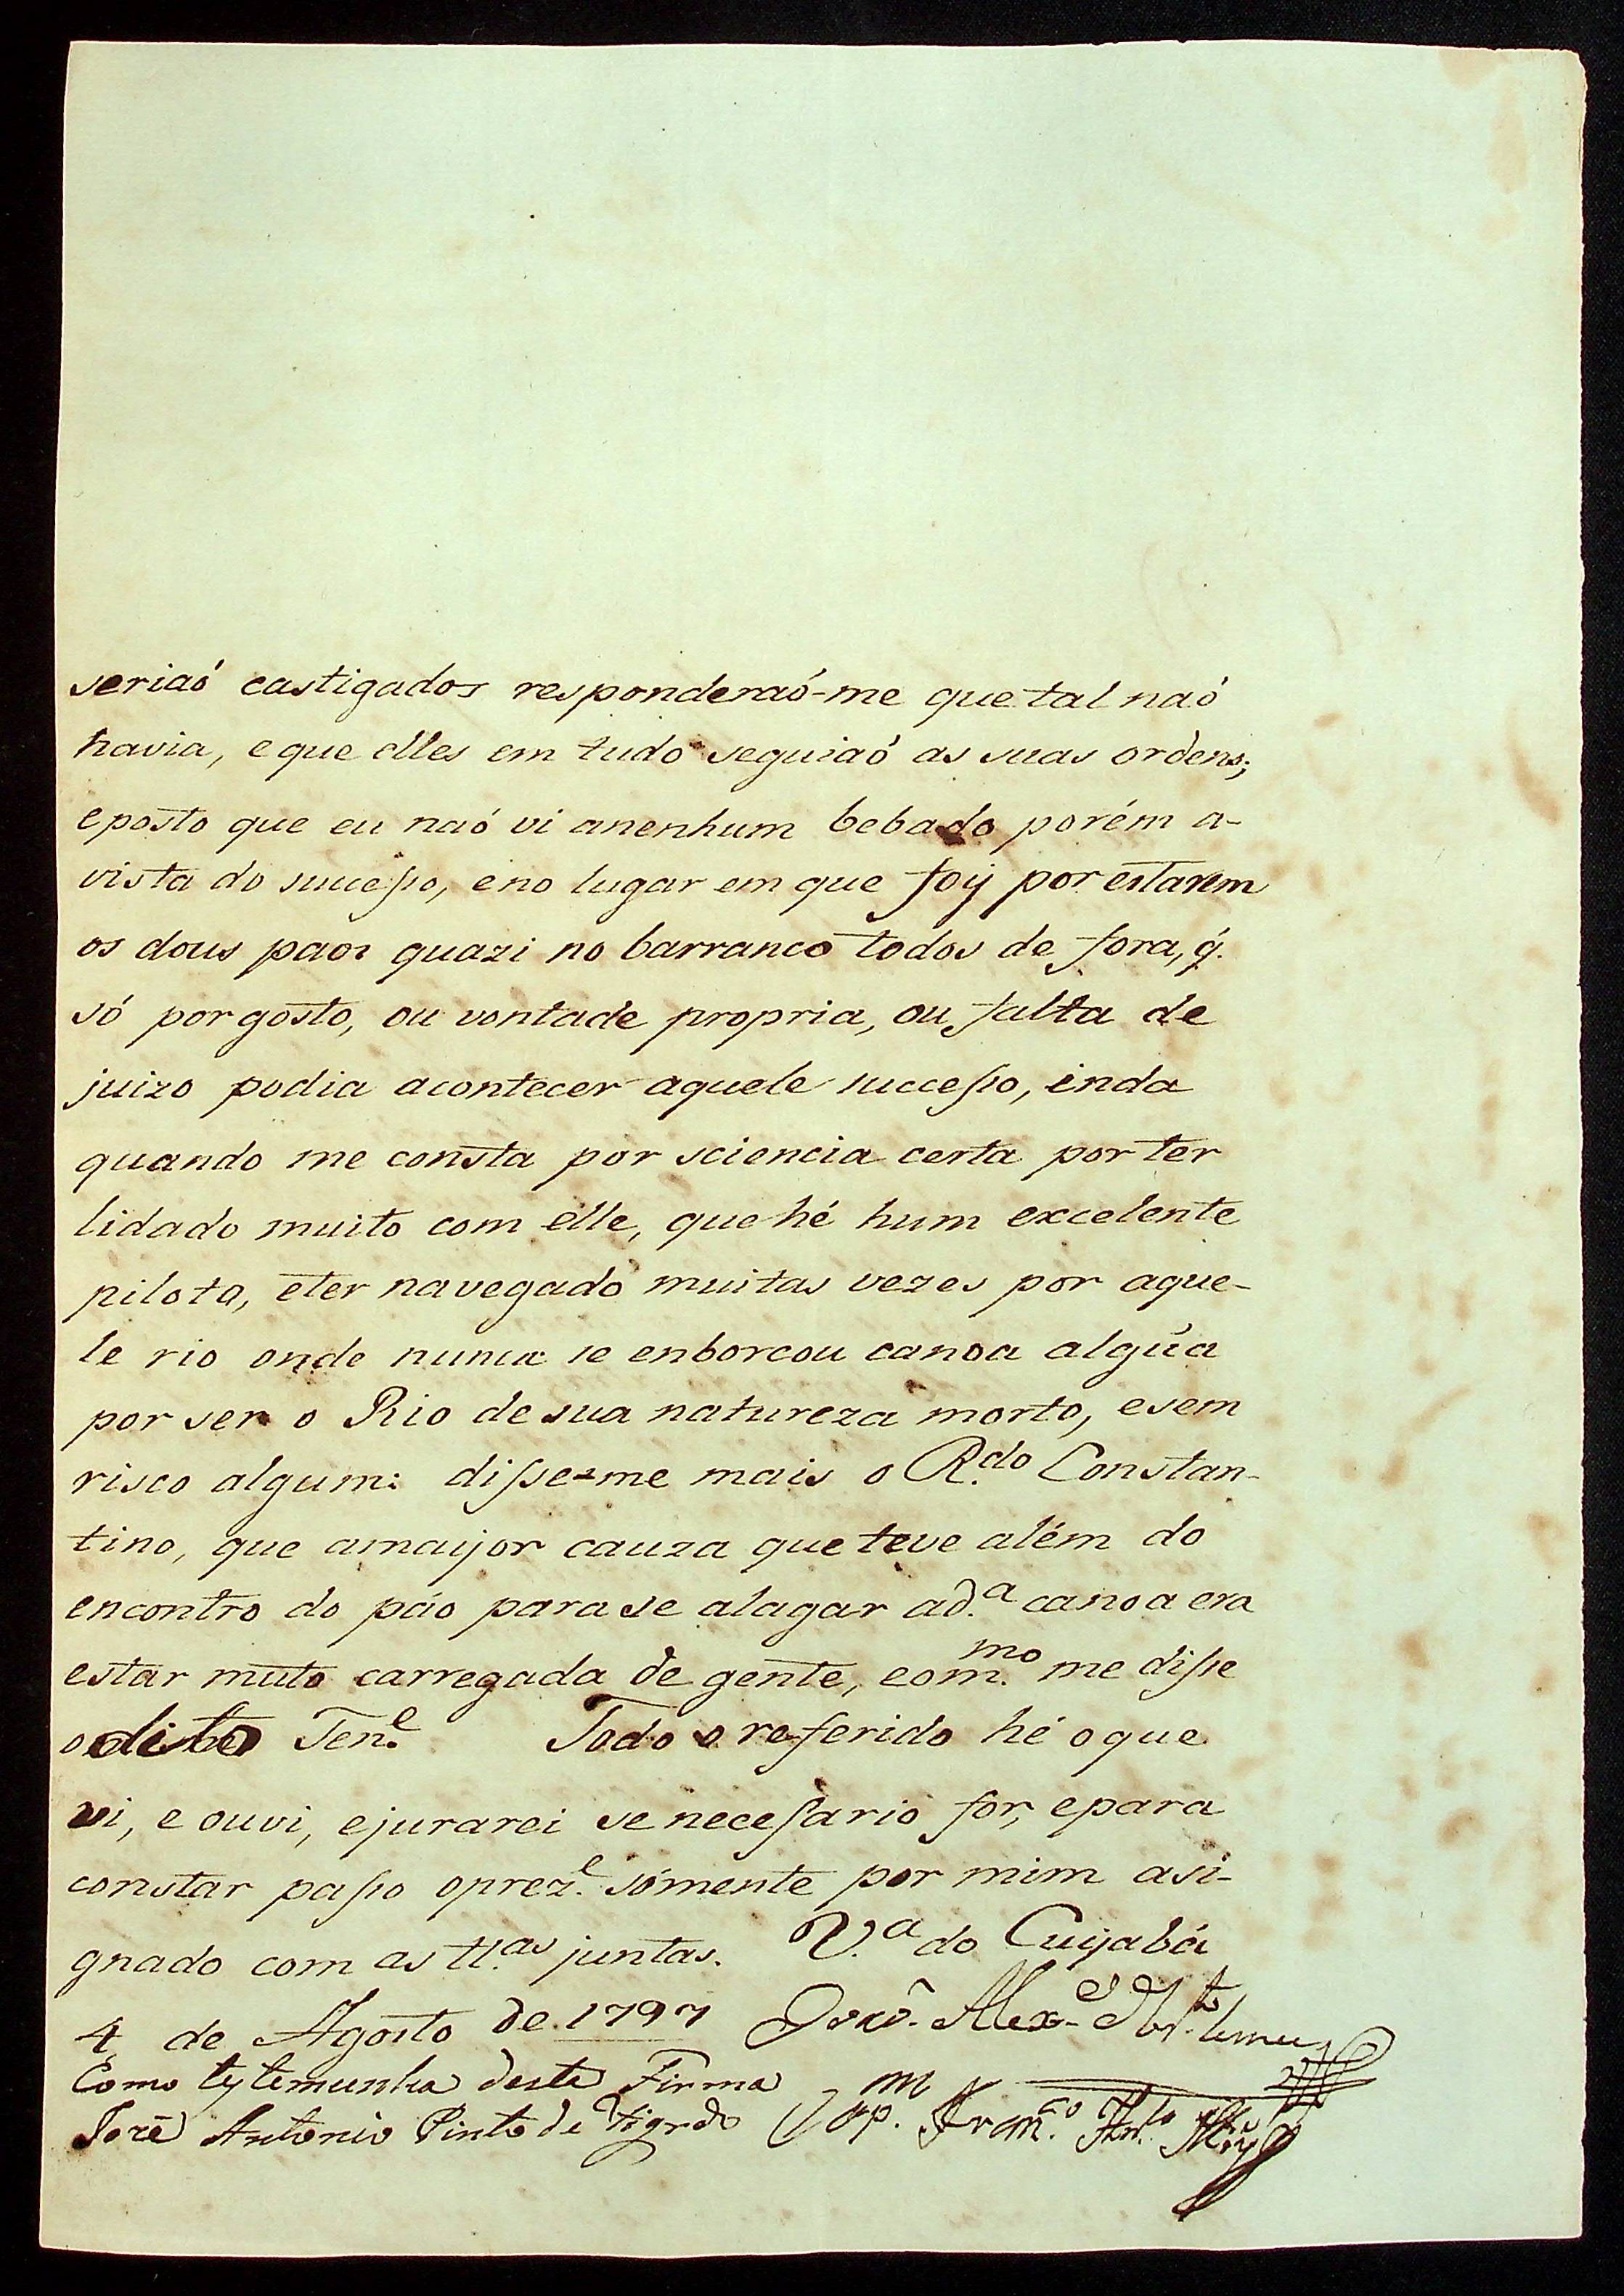 seriaó castigados responderaó-me que tal naó
havia, e que elles em tudo seguiaó as suas ordens;
e posto que eu naó vi anenhum bebado porém a-
vista do succeſso, e no lugar em que foy por estarem
os dous paos quazi no barranco todos de fora, q̃.
só por gosto, ou vontade propria, ou falta de
juizo podia acontecer aquele succeſso, inda
quando me consta por sciencia certa por ter
lidado muito com elle, que hé hum excelente
pilota, e ter navegado muitas vezes por aque-
le rio onde nunca se enborcou canoa algũa
por ser o Rio de sua natureza morto, e sem
risco algum: diſse-me mais o R.do Constan-
tino, que amayor cauza que teve além do
encontro do páo para se alagar a d.a canoa era
estar muto carregada de gente, e o m.mo me diſse
o dito Ten.e Todo o referido hé o que
vi, e ouvi, e jurarei se neceſario for, e para
constar paſso o prez.e sómente por mim asi-
gnado com as tt.as juntas. V.a do Cuyabá
4 de Agosto de 1797 Alex.e
Como testemunha desta Firma
José Antonio Pinto de Fran.co Ant.o